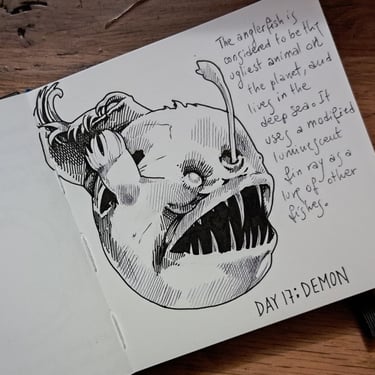 The anglerfish is
considered to be the
ugliest animal on
the planet, and
lives in the
deep sea. It
uses a modified
luminescent
fin ray as a
lure of other
fishes.
DAY 17: DEMON